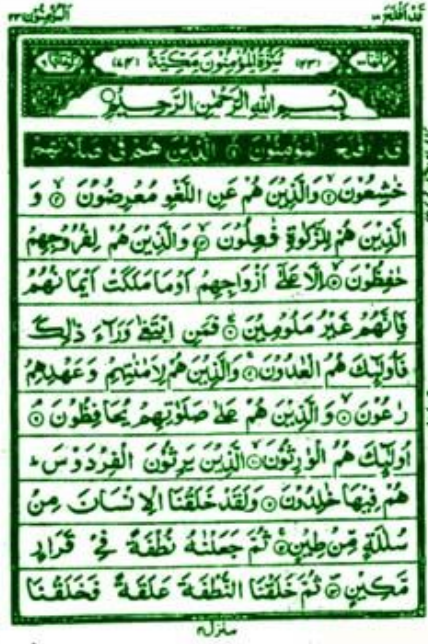 قد افلح ١٨ المؤمنون ٢٣
(٢٣) سُوْرَةُ الْمُؤْمِنُوْنَ مَكِّيَّةٌ (٧٤)
بِسْمِ اللّٰهِ الرَّحْمٰنِ الرَّحِيْمِ
قَدْ اَفْلَحَ الْمُؤْمِنُوْنَ ۝١ الَّذِيْنَ هُمْ فِيْ صَلَاتِهِمْ
خٰشِعُوْنَ ۝٢ وَالَّذِيْنَ هُمْ عَنِ اللَّغْوِ مُعْرِضُوْنَ ۝٣ وَ
الَّذِيْنَ هُمْ لِلزَّكٰوةِ فٰعِلُوْنَ ۝٤ وَالَّذِيْنَ هُمْ لِفُرُوْجِهِمْ
حٰفِظُوْنَ ۝٥ اِلَّا عَلٰٓى اَزْوَاجِهِمْ اَوْ مَا مَلَكَتْ اَيْمَانُهُمْ
فَاِنَّهُمْ غَيْرُ مَلُوْمِيْنَ ۝٦ فَمَنِ ابْتَغٰى وَرَآءَ ذٰلِكَ
فَاُولٰٓئِكَ هُمُ الْعٰدُوْنَ ۝٧ وَالَّذِيْنَ هُمْ لِاَمٰنٰتِهِمْ وَعَهْدِهِمْ
رٰعُوْنَ ۝٨ وَالَّذِيْنَ هُمْ عَلٰى صَلَوٰتِهِمْ يُحَافِظُوْنَ ۝٩
اُولٰٓئِكَ هُمُ الْوٰرِثُوْنَ ۝١٠ الَّذِيْنَ يَرِثُوْنَ الْفِرْدَوْسَ ؕ
هُمْ فِيْهَا خٰلِدُوْنَ ۝١١ وَلَقَدْ خَلَقْنَا الْاِنْسَانَ مِنْ
سُلٰلَةٍ مِّنْ طِيْنٍ ۝١٢ ثُمَّ جَعَلْنٰهُ نُطْفَةً فِيْ قَرَارٍ
مَّكِيْنٍ ۝١٣ ثُمَّ خَلَقْنَا النُّطْفَةَ عَلَقَةً فَخَلَقْنَا
منزل٤